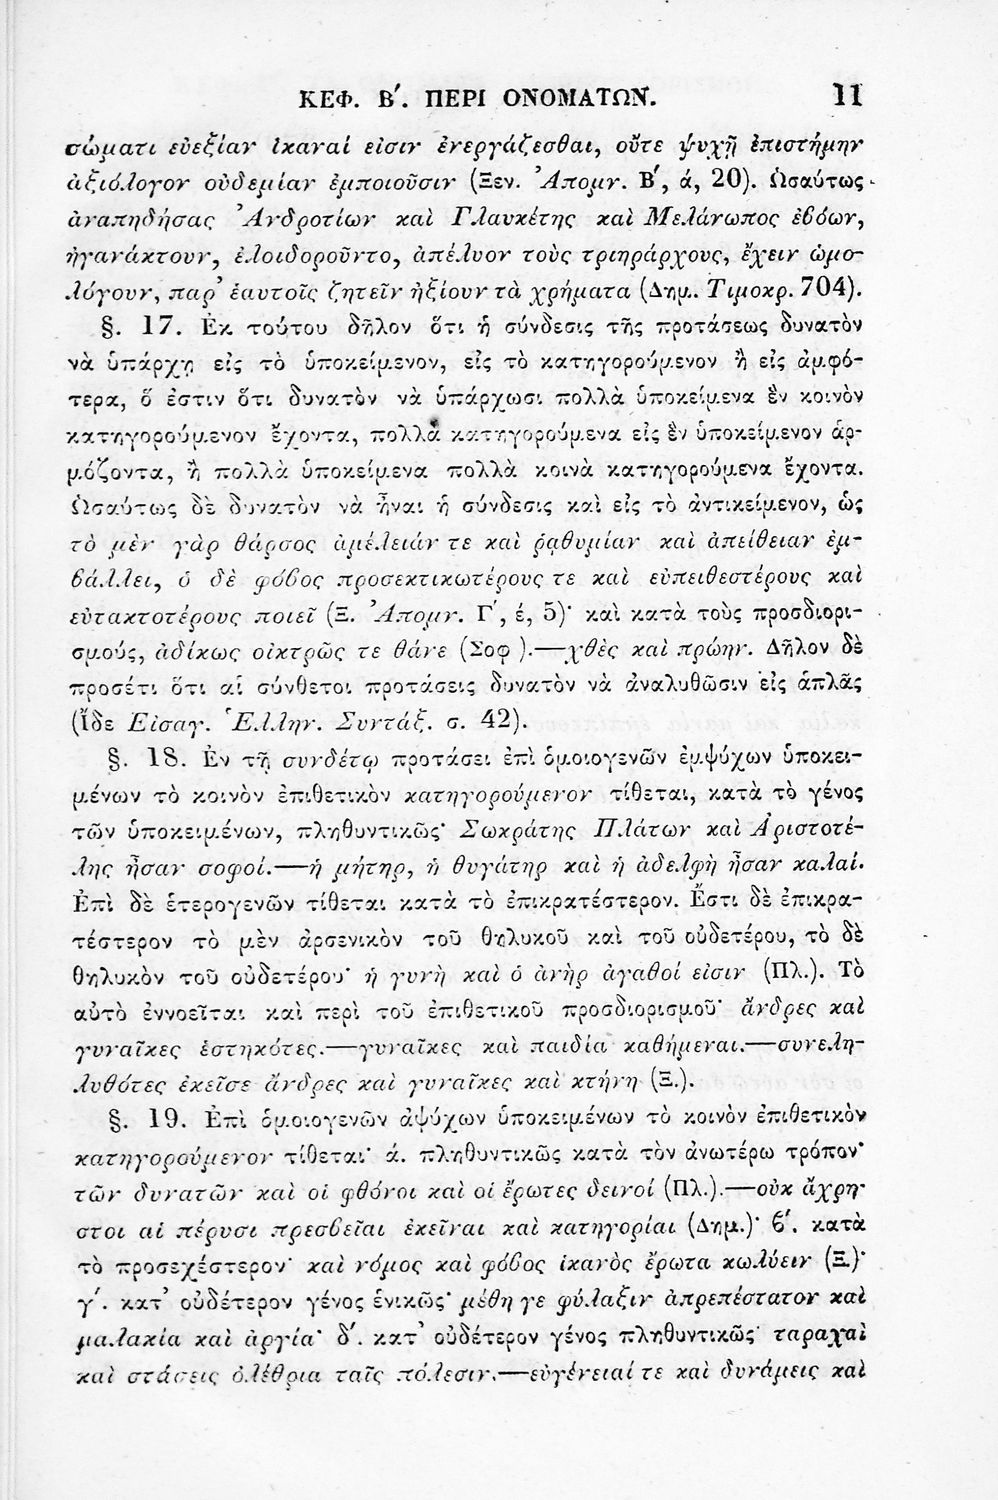 ΚΕΦ. Β΄. ΠΕΡΙ ΟΝΟΜΑΤΩΝ. 11
σώματι εὐεξίαν ἱκαναί εἰσιν ἐνεργάζεσθαι, οὔτε ψυχῇ ἐπιστήμην
ἀξιόλογον οὐδεμίαν ἐμποιοῦσιν (Ξεν. Ἀπομν. Β΄, ά, 20). Ὡσαύτως·
ἀναπηδήσας Ἀνδροτίων καὶ Γλαυκέτης καὶ Μελάνωπος ἐβόων,
ἠγανάκτουν, ἐλοιδοροῦντο, ἀπέλυον τοὺς τριηράρχους, ἔχειν ὡμο-
λόγουν, παρ᾽ ἑαυτοῖς ζητεῖν ἠξίουν τὰ χρήματα (Δημ.. Τιμοκρ. 704).
§. 17. Ἐκ τούτου δῆλον ὅτι ἡ σύνδεσις τῆς προτάσεως δυνατὸν
νὰ ὑπάρχῃ εἰς τὸ ὑποκείμενον, εἰς τὸ κατηγορούμενον ἢ εἰς ἀμφό-
τερα, ὅ ἐστιν ὅτι δυνατὸν νὰ ὑπάρχωσι πολλὰ ὑποκείμενα ἓν κοινὸν
κατηγορούμενον ἔχοντα, πολλὰ κατηγορούμενα εἰς ἓν ὑποκείμενον ἁρ-
μόζοντα, ἢ πολλὰ ὑποκείμενα πολλὰ κοινὰ κατηγορούμενα ἔχοντα.
Ὡσαύτως δὲ δυνατὸν νὰ ἦναι ἡ σύνδεσις καὶ εἰς τὸ ἀντικείμενον, ὡς
τὸ μὲν γὰρ θάρσος ἀμέλειάν τε καὶ ῥᾳθυμίαν καὶ ἀπείθειαν ἐμ-
βάλλει, ὁ δὲ φόβος προσεκτικωτέρους τε καὶ εὐπειθεστέρους καὶ
εὐτακτοτέρους ποιεῖ (Ξ. Ἀπομν. Γ΄, έ, 5)· καὶ κατὰ τοὺς προσδιορι-
σμούς, ἀδίκως οἰκτρῶς τε θάνε (Σοφ ).—χθὲς καὶ πρώην. Δῆλον δὲ
προσέτι ὅτι αἱ σύνθετοι προτάσεις δυνατὸν νὰ ἀναλυθῶσιν εἰς ἁπλᾶς
(Ἴδε Εἰσαγ. Ἑλλην. Συντάξ. σ. 42).
§. 18. Ἐν τῇ συνδέτῳ προτάσει ἐπὶ ὁμοιογενῶν ἐμψύχων ὑποκει-
μένων τὸ κοινὸν ἐπιθετικὸν κατηγορούμενον τίθεται, κατὰ τὸ γένος
τῶν ὑποκειμένων, πληθυντικῶς· Σωκράτης Πλάτων καὶ Ἀριστοτέ-
λης ἦσαν σοφοί.—ἡ μήτηρ, ἡ θυγάτηρ καὶ ἡ ἀδελφὴ ἦσαν καλαί.
Ἐπὶ δὲ ἑτερογενῶν τίθεται κατὰ τὸ ἐπικρατέστερον. Ἔστι δὲ ἐπικρα-
τέστερον τὸ μὲν ἀρσενικὸν τοῦ θηλυκοῦ καὶ τοῦ οὐδετέρου, τὸ δὲ
θηλυκὸν τοῦ οὐδετέρου· ἡ γυνὴ καὶ ὁ ἀνὴρ ἀγαθοί εἰσιν (Πλ.). Τὸ
αὐτὸ ἐννοεῖται καὶ περὶ τοῦ ἐπιθετικοῦ προσδιορισμοῦ· ἄνδρες καὶ
γυναῖκες ἑστηκότες.—γυναῖκες καὶ παιδία καθήμεναι.—συνελη-
λυθότες ἐκεῖσε ἄνδρες καὶ γυναῖκες καὶ κτήνη (Ξ.).
§. 19. Ἐπὶ ὁμοιογενῶν ἀψύχων ὑποκειμένων τὸ κοινὸν ἐπιθετικὸν
κατηγορούμενον τίθεται· ά. πληθυντικῶς κατὰ τὸν ἀνωτέρω τρόπον·
τῶν δυνατῶν καὶ οἱ φθόνοι καὶ οἱ ἔρωτες δεινοί (Πλ.).—οὐκ ἄχρη-
στοι αἱ πέρυσι πρεσβεῖαι ἐκεῖναι καὶ κατηγορίαι (Δημ.)· β΄. κατὰ
τὸ προσεχέστερον· καὶ νόμος καὶ φόβος ἱκανὸς ἔρωτα κωλύειν (Ξ.)·
γ΄. κατ᾽ οὐδέτερον γένος ἑνικῶς· μέθη γε φύλαξιν ἀπρεπέστατον καὶ
μαλακία καὶ ἀργία· δ΄. κατ᾽ οὐδέτερον γένος πληθυντικῶς· ταραχαὶ
καὶ στάσεις ὀλέθρια ταῖς πόλεσιν.—εὐγένειαί τε καὶ δυνάμεις καὶ